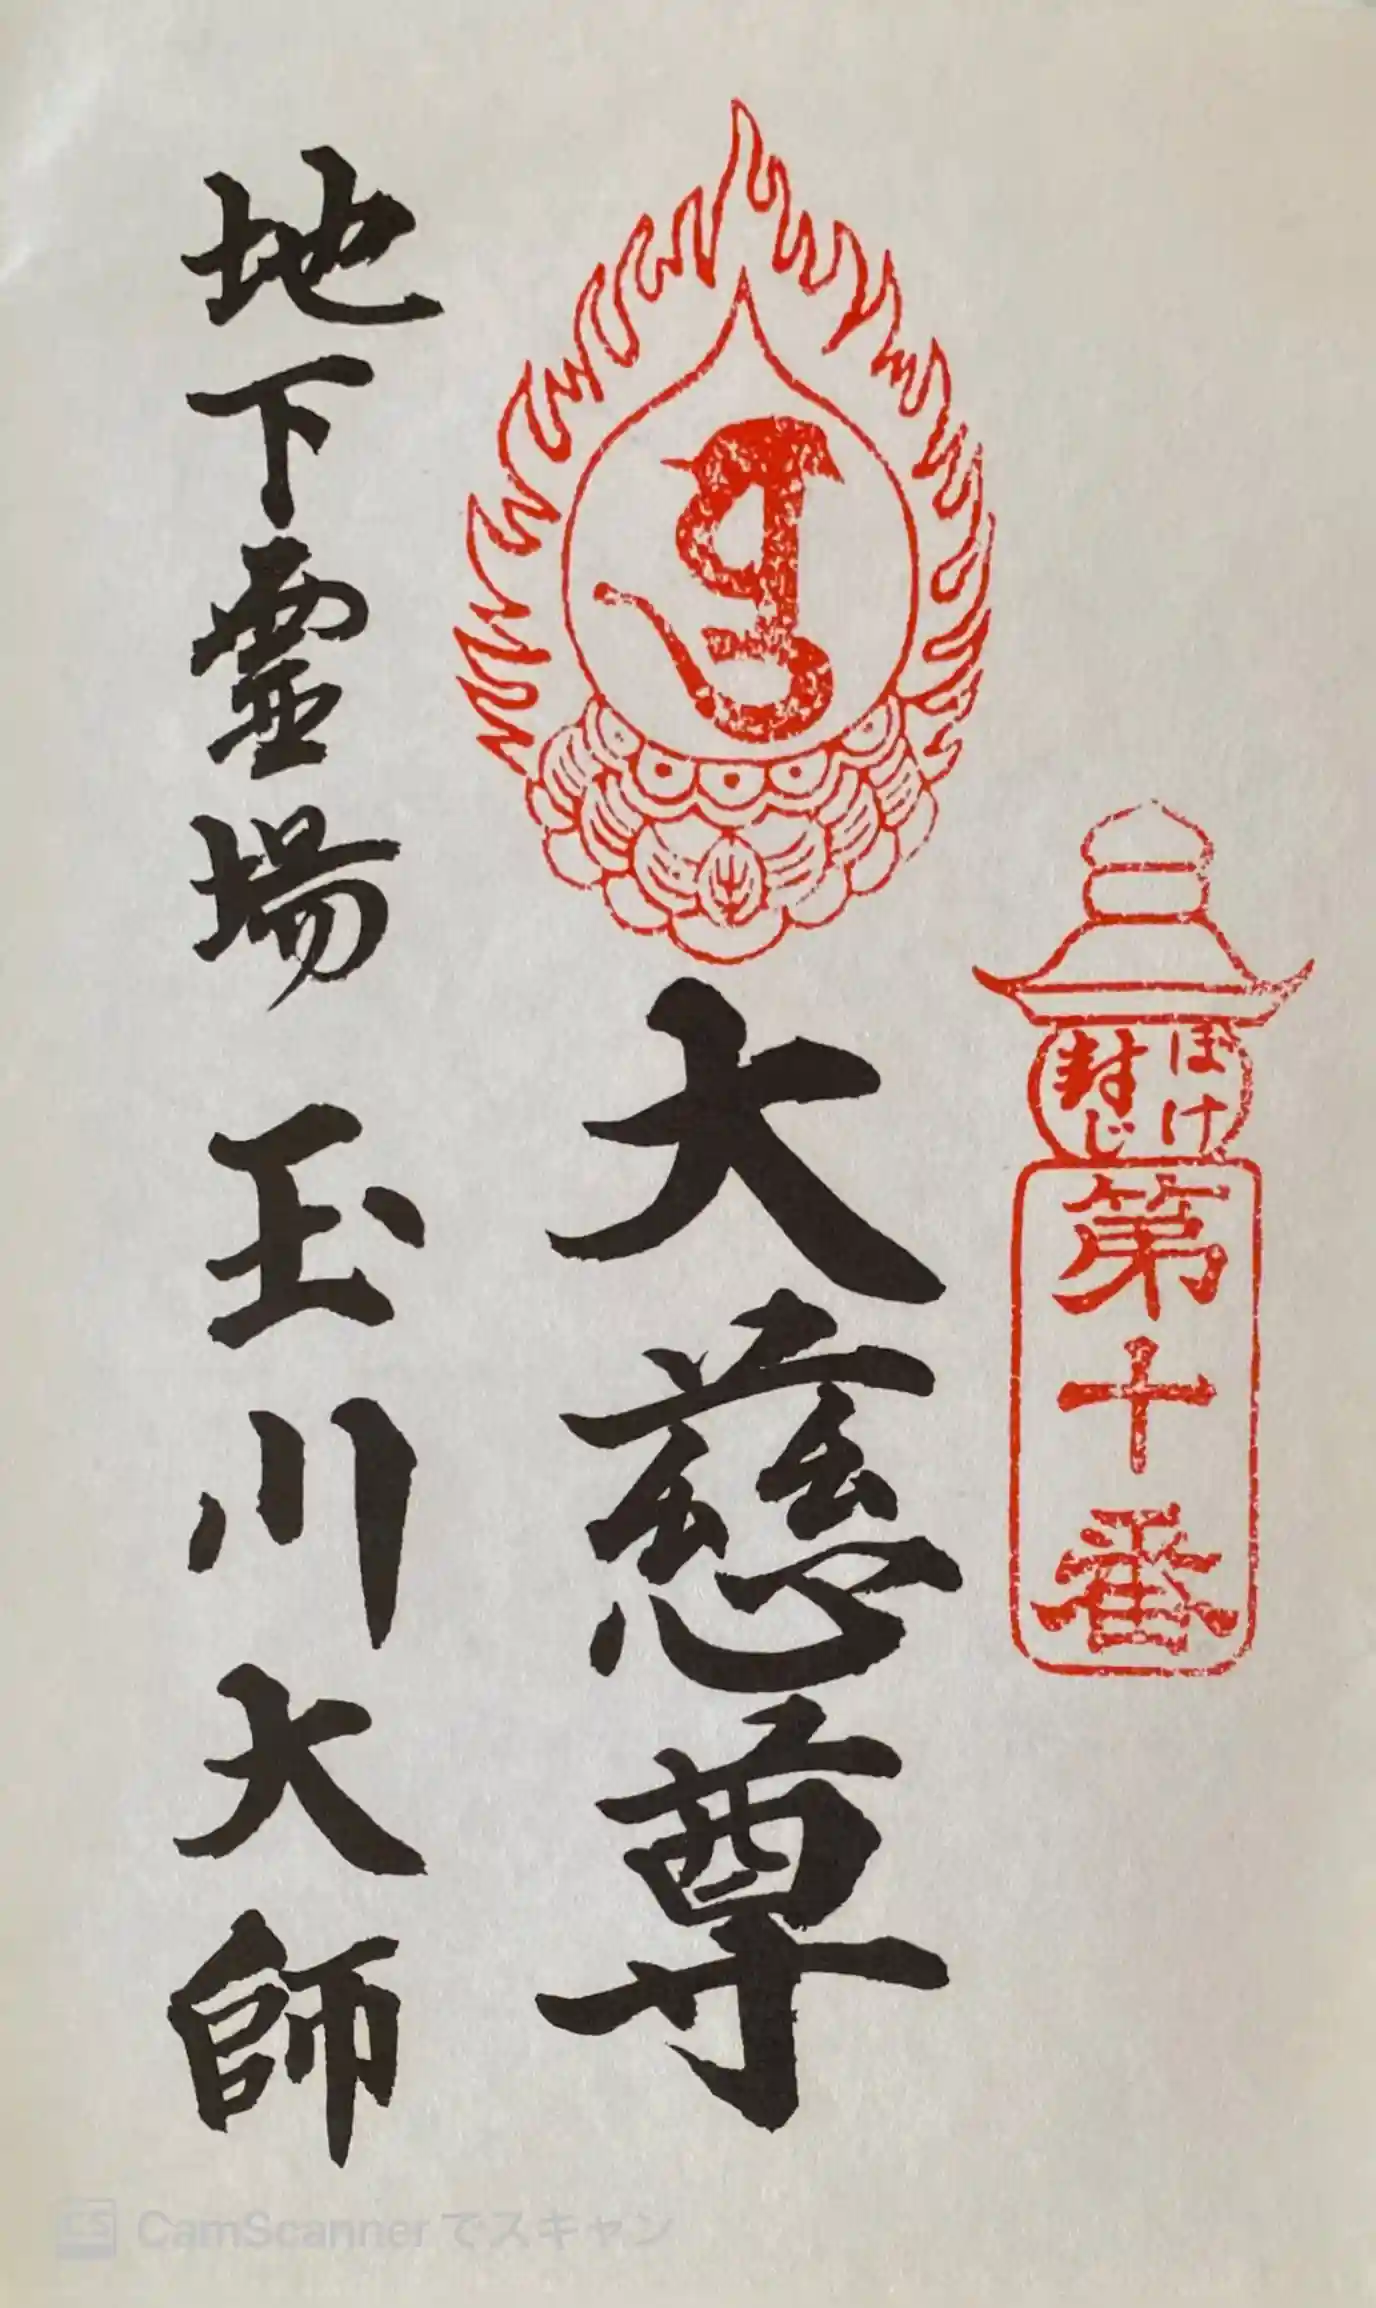 ぼけ
封じ
第十番
大慈尊
地下霊場 玉川大師
CS CamScannerでスキャン